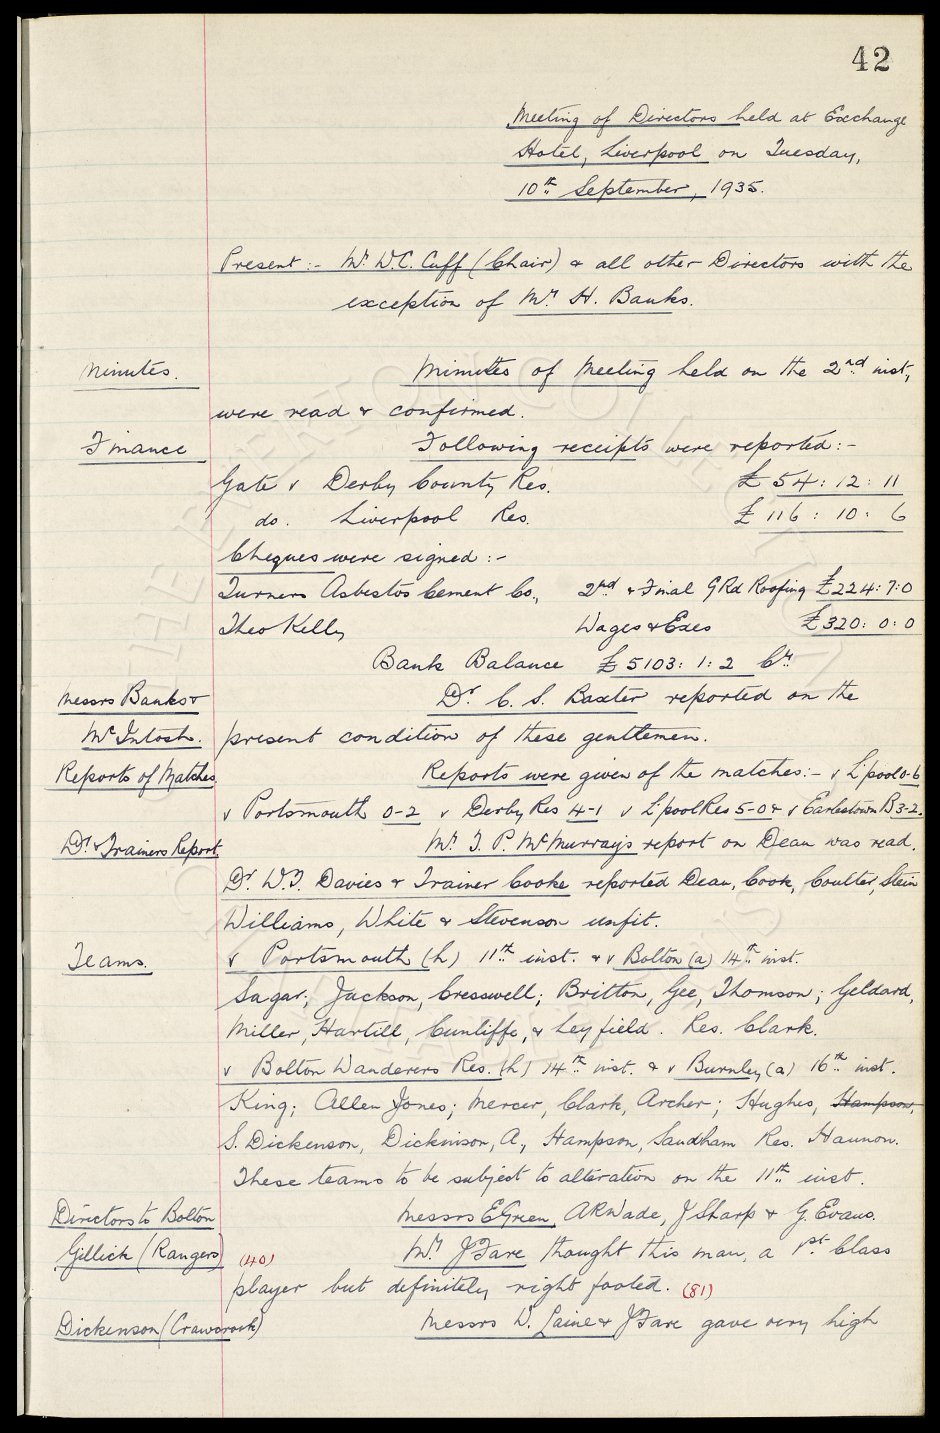 42
Meeting of Directors held at Exchange
Hotel, Liverpool on Tuesday,
10th September, 1935.
Present :- Mr. W.C. Cuff (Chair) & all other Directors with the
exception of Mr. H. Banks.
Minutes. Minutes of Meeting held on the 2nd inst,
were read & confirmed.
Finance Following receipts were reported :-
Gate v Derby County Res. £ 54 : 12 : 11
do. Liverpool Res. £ 116 : 10 : 6
Cheques were signed :-
Turners Asbestos Cement Co., 2nd & Final G Rd Roofing £224 : 7 : 0
Theo Kelly Wages & Exes £320 : 0 : 0
Bank Balance £5103 : 1 : 2 Cr.
Messrs Banks & Dr. C. S. Baxter reported on the
McIntosh. present condition of these gentlemen.
Reports of Matches Reports were given of the matches :- v L'pool 0-6
v Portsmouth 0-2 v Derby Res 4-1 v L'pool Res 5-0 & v Earlestown B 3-2.
Dr. & Trainers Report Mr. T. P. McMurray's report on Dean was read.
Dr. W.T. Davies & Trainer Cooke reported Dean, Cook, Coulter, Stein
Williams, White & Stevenson unfit.
Teams. v Portsmouth (h) 11th inst. & v Bolton (a) 14th inst.
Sagar; Jackson, Cresswell; Britton, Gee, Thomson; Geldard,
Miller, Hartill, Cunliffe, & Leyfield. Res. Clark.
v Bolton Wanderers Res. (h) 14th inst. & v Burnley (a) 16th inst.
King; Allen Jones; Mercer, Clark, Archer; Hughes, Hampson,
S. Dickenson, Dickinson, A., Hampson, Sandham Res. Hannon.
These teams to be subject to alteration on the 11th inst.
Directors to Bolton Messrs E Green, A R Wade, J Sharp & G. Evans.
Gillick (Rangers) (40) Mr. J Fare thought this man, a 1st. Class
player but definitely right footed. (81)
Dickenson (Crawcrook) Messrs W. Laine & J Fare gave very high